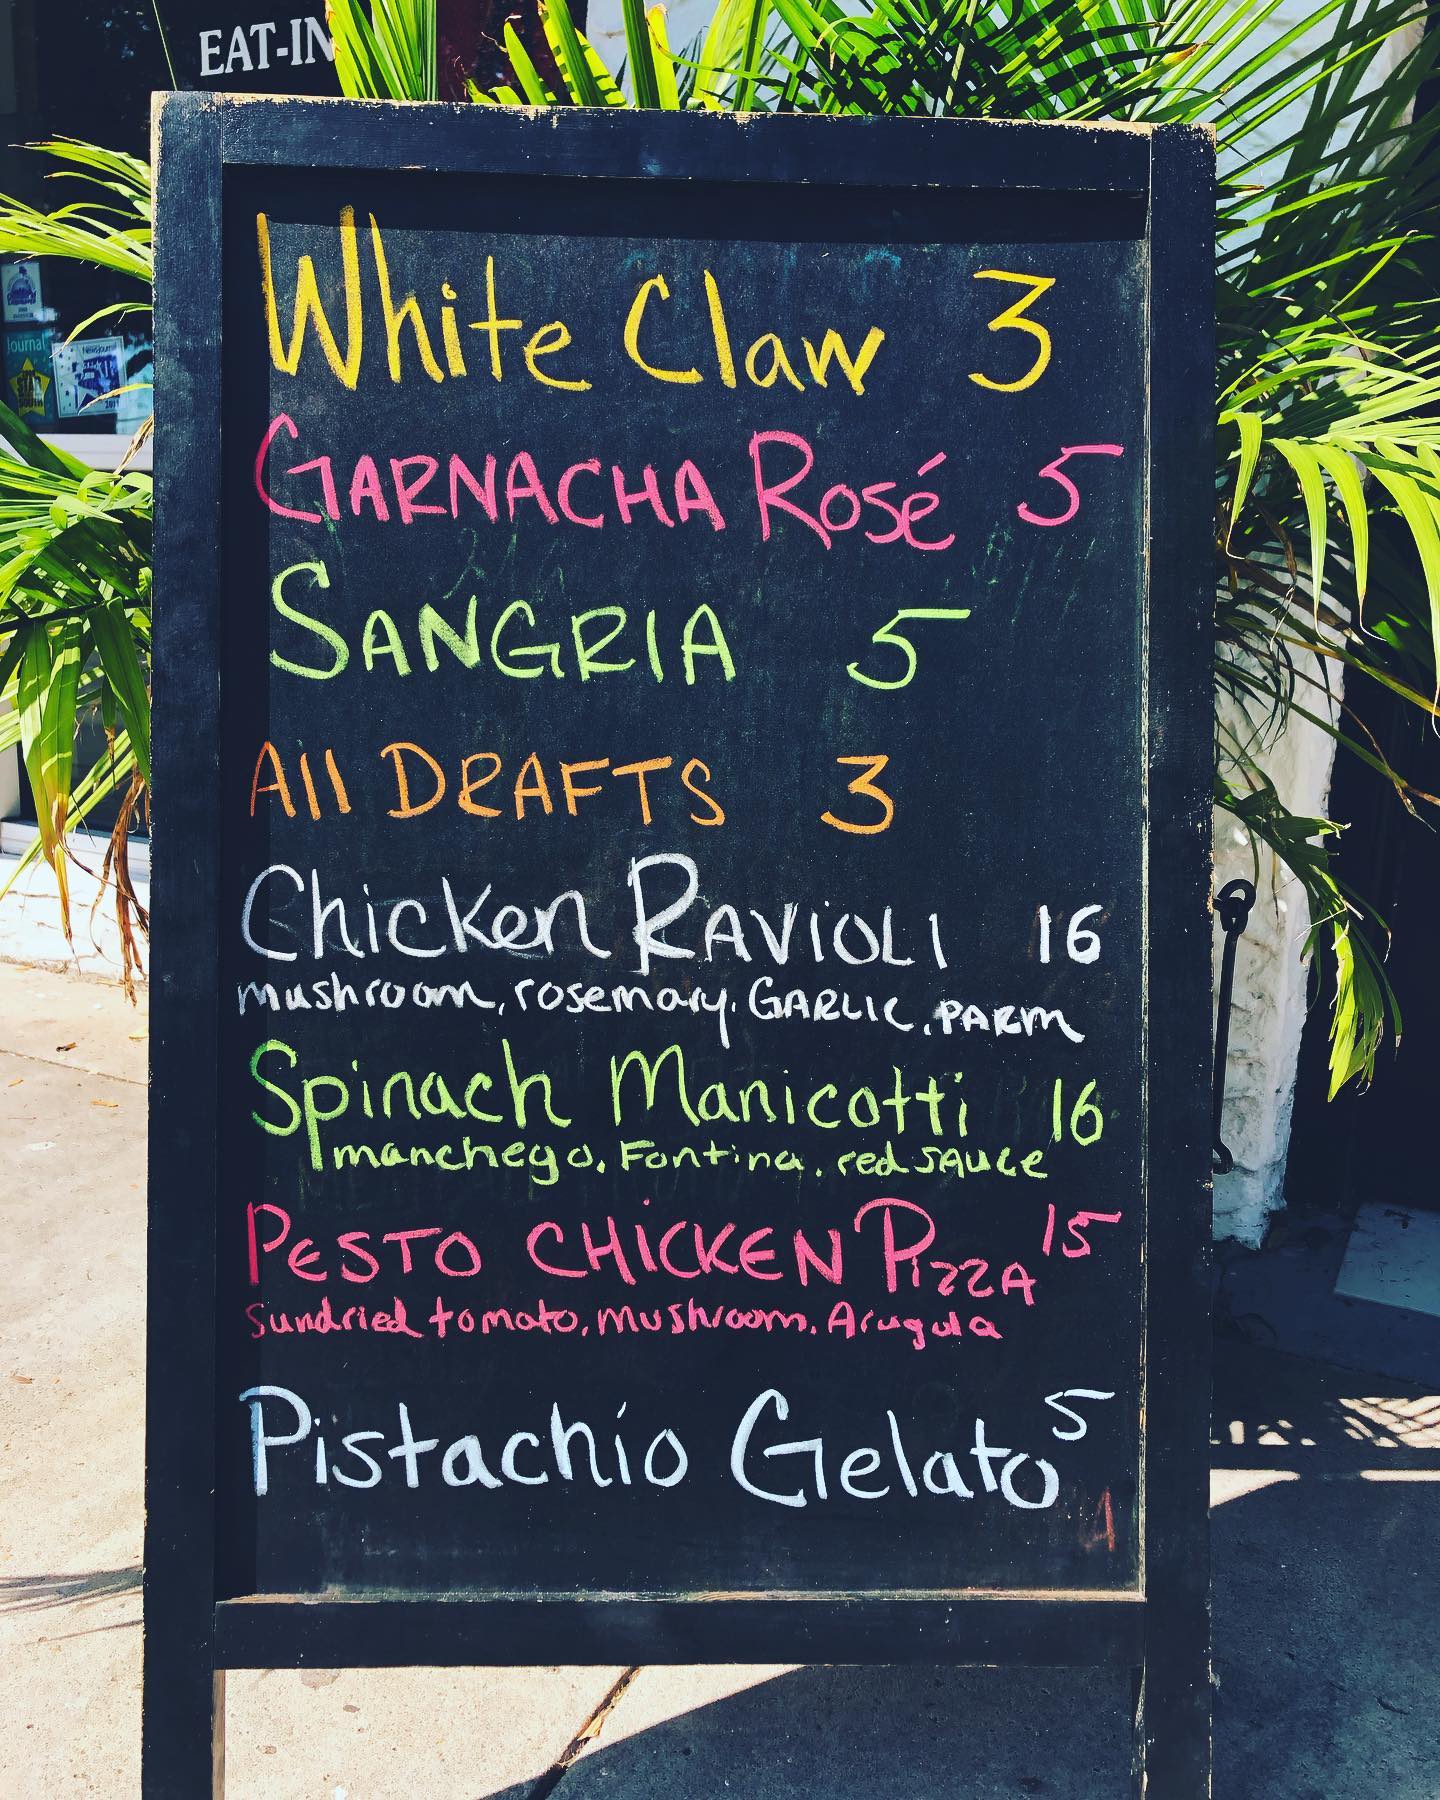 EAT-IN
White Claw 3
GARNACHA Rosé 5
SANGRIA 5
All DRAFTS 3
Chicken RAVIOLI 16
mushroom, rosemary, GARLIC, PARM
Spinach Manicotti 16
manchego, Fontina, red sauce
PESTO CHICKEN PIZZA 15
Sundried tomato, mushroom, Arugula
Pistachio Gelato 5
Journal
STAR
SOUTH